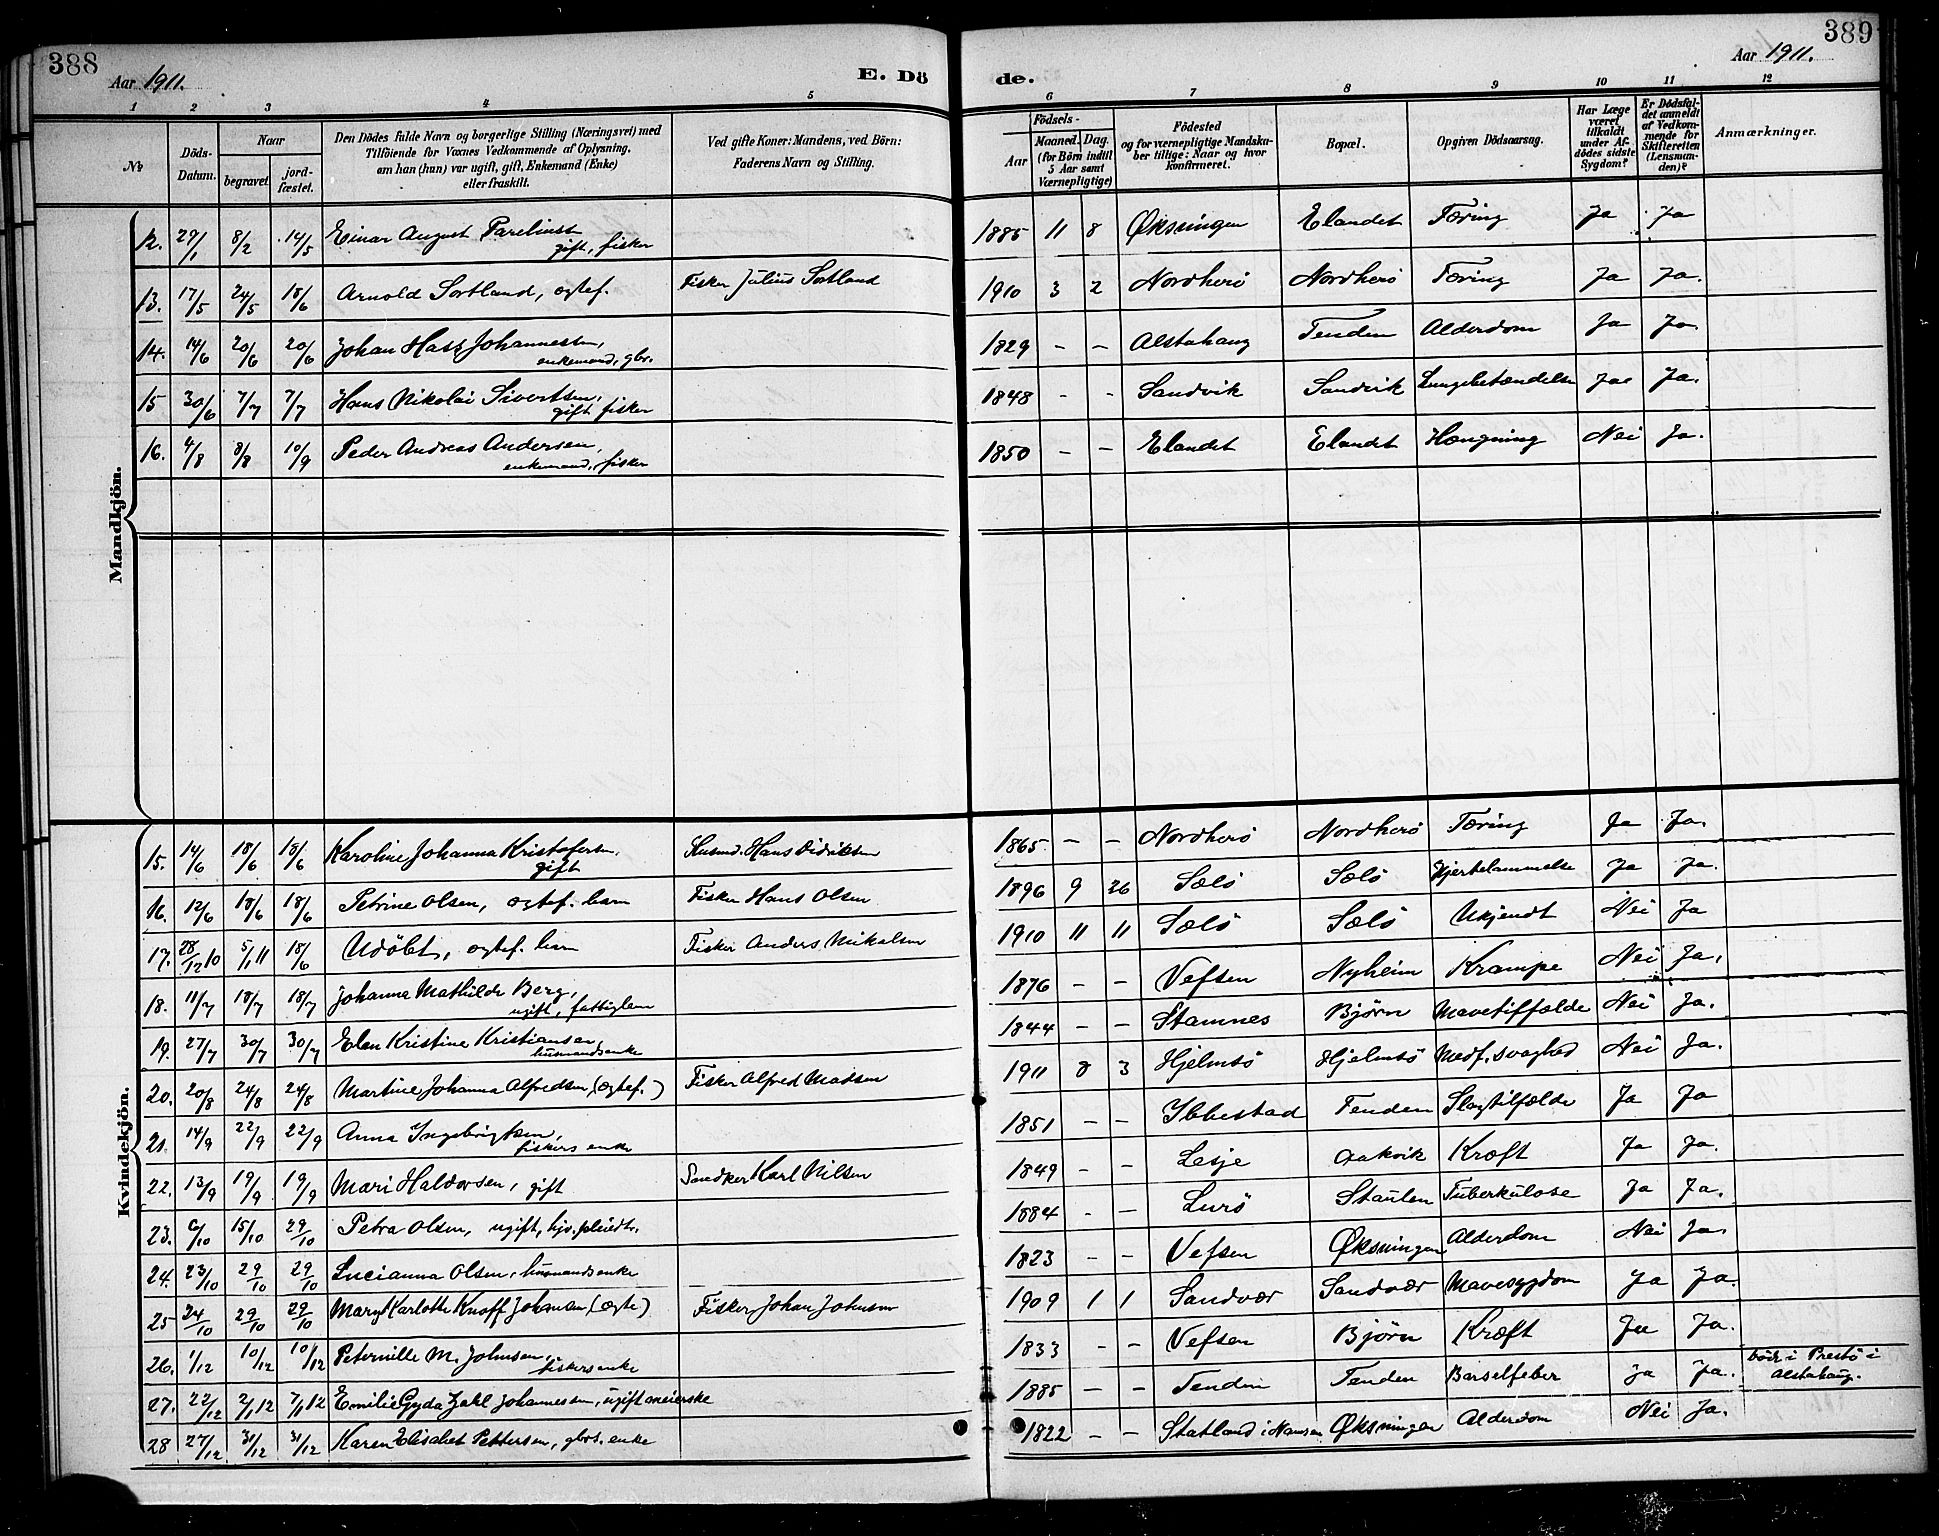 388
Aar 1911.
E. Dö
de.
389
Aar 1911.
1 2 3 4 5 6 7 8 9 10 11 12
№
Döds-Datum.
Naar
begravet.
jordfæstet.
Den Dödes fulde Navn og borgerlige Stilling (Næringsvei) med
Tilföiende for Voxnes Vedkommende af Oplysning,
om han (hun) var ugift, gift, Enkemand (Enke)
eller fraskilt.
Ved gifte Koner: Mandens, ved Börn:
Faderens Navn og Stilling.
Födsels-
Aar
Maaned. Dag.
(for Börn indtil
5 Aar samt
Værnepligtige)
Födested
og for værnepligtige Mandskaber tillige: Naar og hvor
konfirmeret.
Bopæl.
Opgiven Dödsaarsag.
Har Læge
været
tilkaldt
under Afdödes sidste
Sygdom?
Er Dödsfaldet anmeldt
af Vedkommende for
Skifteretten
(Lensmanden)?
Anmærkninger.
Mandkjön.
12. 29/1 8/2 14/5 Einar August Parelius gift, fisker 1885 11 8 Øksningen Elandet Tæring Ja Ja
13. 17/5 24/5 18/6 Arnold Sortland, ægtef. Fisker Julius Sortland 1910 3 2 Nordherö Nordherö Tæring Ja Ja.
14. 14/6 20/6 20/6 Johan Johannessen, enkemand, gbr. 1829 - - Alstahaug Tenden Alderdom Ja Ja
15 30/6 7/7 7/7 Hans Nikolai Sivertsen, gift fisker 1848 - - Sandvik Sandvik Lungebetændelse Ja Ja.
16. 4/8 8/8 10/9 Peder Andreas Andersen, enkemand, fisker 1850 - - Elandet Elandet Hængning Nei Ja.
Kvindekjön.
15. 14/6 18/6 18/6 Karoline Johanna Kristofersen, gift Husmd. Hans Didriksen 1865 - - Nordherö Nordherö Tæring Ja Ja.
16. 12/6 18/6 18/6 Petrine Olsen, ægtef. barn Fisker Hans Olsen 1896 9 26 Sælö Sælö Hjertelammelse Ja Ja.
17. 28/12 10 5/1 11 18/6 Udöbt, ægtef. barn Fisker Anders Mikalsen 1910 11 11 Sælö Sælö Ukjendt Nei Ja
18. 11/7 18/7 18/7 Johanna Mathilde Berg, ugift, fattiglem 1876 - - Vefsen Nyheim Krampe Nei Ja.
19. 27/7 30/7 30/7 Elen Kristine Kristiansen, husmandsenke 1844 - - Stamnes Bjørn Mavetilfælde Nei Ja.
20. 20/8 24/8 24/8 Martine Johanna Alfredsen, (ægtef.) Fisker Alfred Madsen 1911 8 3 Hjelmsö Hjelmsö Medf. svaghed Nei Ja.
21. 14/9 22/9 22/9 Anna Ingebrigtsen, fiskers enke 1851 - - Ibbestad Tenden Slagtilfælde Ja Ja
22. 13/9 19/9 19/9 Mari Haldorsen, gift Karl Nilsen 1849 - - Lesje Aakvik Kræft Ja Ja.
23. 6/10 15/10 29/10 Petra Olsen, ugift, 1884 - - Lurö Staulen Tuberkulose Ja Ja.
24. 23/10 29/10 29/10 Lucianna Olsen, husmandsenke 1823 - - Vefsen Øksningen Alderdom Nei Ja.
25 24/10 29/10 29/10 Mary Karlotte Knoff Johansen, (ægte) Fisker Johan Johnsen 1909 1 1 Sandvær Sandvær Mavesygdom Ja Ja.
26. 1/12 10/12 10/12 Peternille M. Johnsen, fiskersenke 1833 - - Vefsen Bjørn Kræft Ja Ja.
27. 22/12 2/1 12 7/1 12 Emilie Gyda Zahl Johannessen, ugift meierske 1885 - - Tenden Tenden Barselfeber Ja Ja. böde i Prestö i Alstahaug.
28 27/12 31/12 31/12 Karen Elisabet Pettersen, gbrs. enke 1822 - - Statland i Namsen Øksningen Alderdom Nei Ja.